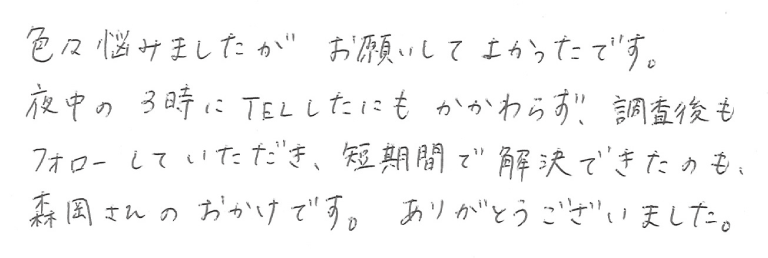 色々悩みましたが お願いしてよかったです。
夜中の 3時に TELしたにも かかわらず、調査後も
フォローしていただき、短期間で解決できたのも、
森岡さんのおかげです。 ありがとうございました。